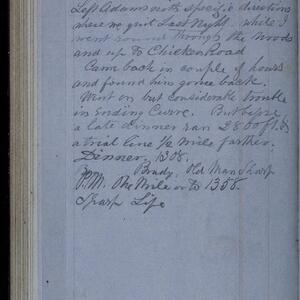 Left Adams with specific directions
where we quit Last Night. while I
went round through the woods
and up to Chicken Road
Came back in couple of hours
and found him gone back.
Went on but considerable trouble
in Ending Curve. But before
a late dinner ran 2800 ft. &
a trial line 1/2 mile farther.
Dinner, 1308.
Brady, Old Man Sharp
P.M. One Mile on to 1358.